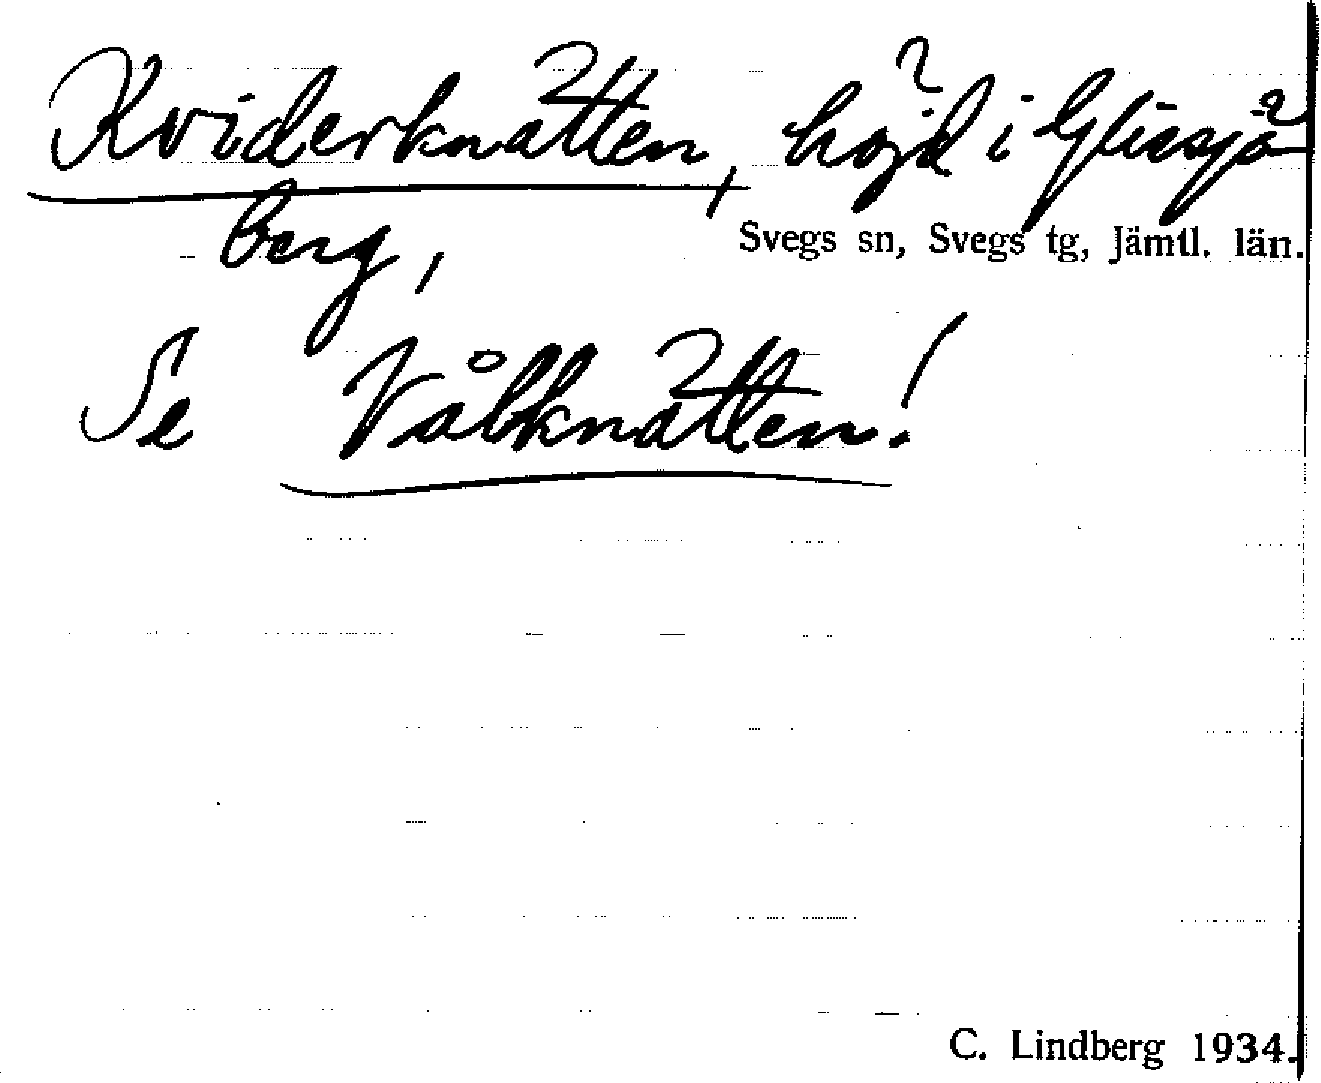 Kviderknätten, höjd i Glissjö-
berg,
Svegs sn, Svegs tg, Jämtl. län.
Se Vålknätten!
C. Lindberg 1934.